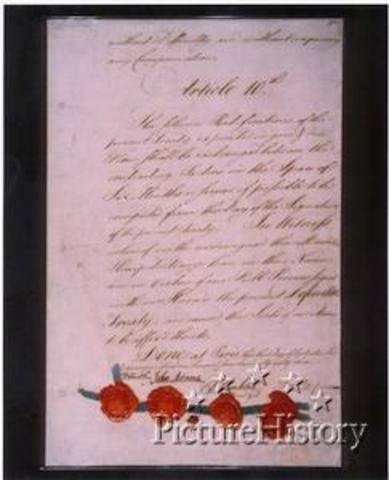 without Difficulty and without requiring
any Compensation.
Article 10th
The solemn Ratifications of the
present Treaty expedited in good & due
Form shall be exchanged between the
contracting Parties in the Space of
Six Months or sooner if possible to be
computed from the Day of the Signature
of the present Treaty. In Witness
whereof we the undersigned their Ministers
Plenipotentiary have in their Name
and in Virtue of our Full Powers signed
with our Hands the present Definitive
Treaty, and caused the Seals of our Arms
to be affix'd thereto.
Done at Paris, this third Day of September
John Adams
PictureHistory